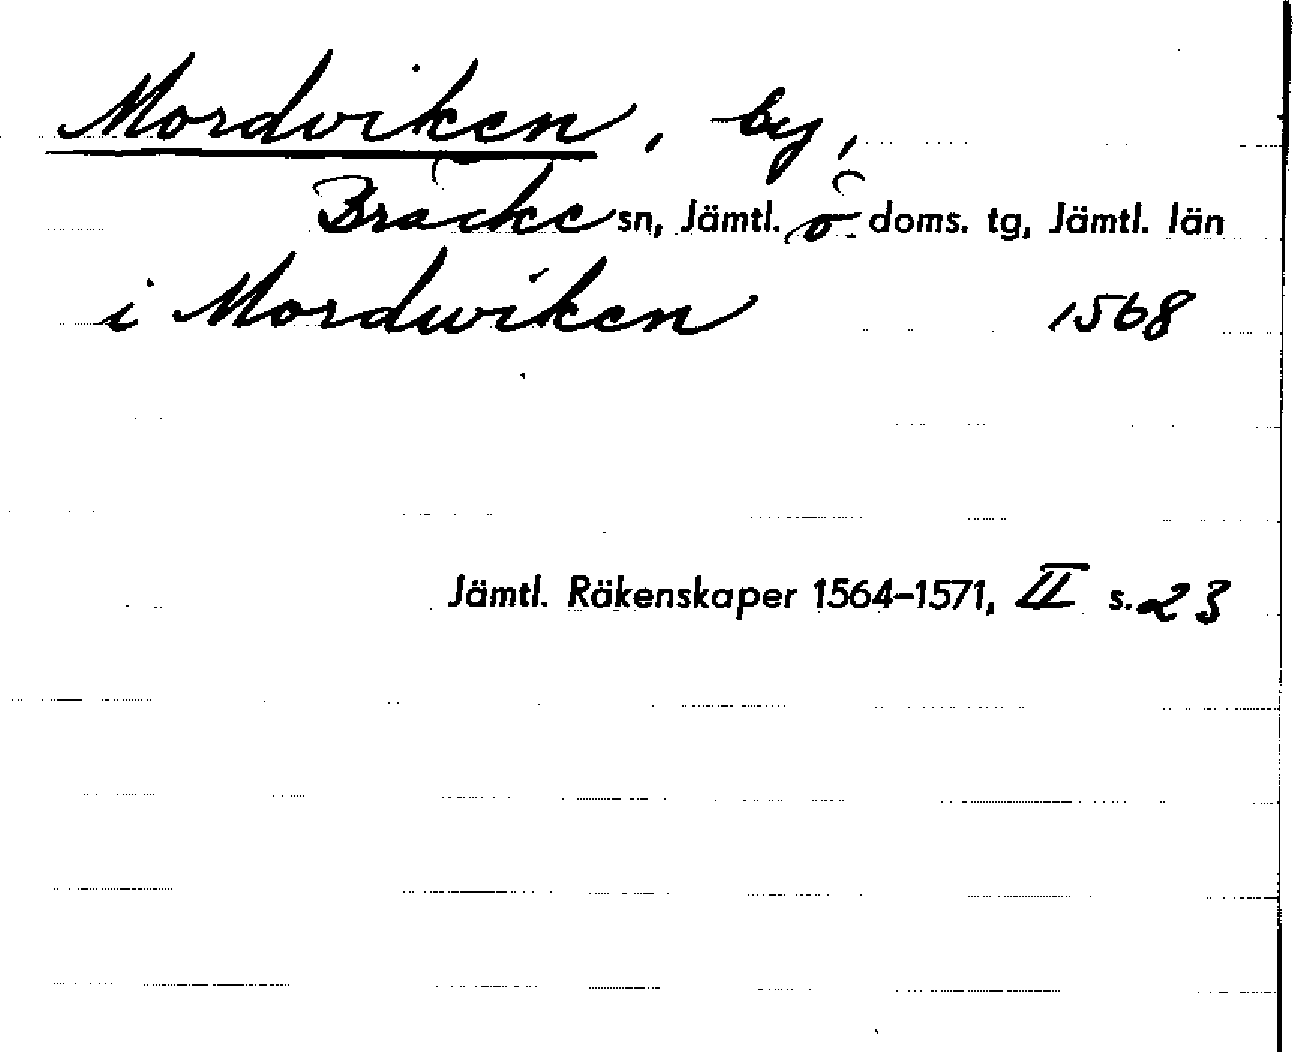 Mordviken, by,
Bräcke sn, Jämtl. ö. doms. tg, Jämtl. län
i Mordwiken 1568
Jämtl. Räkenskaper 1564-1571, II s. 23